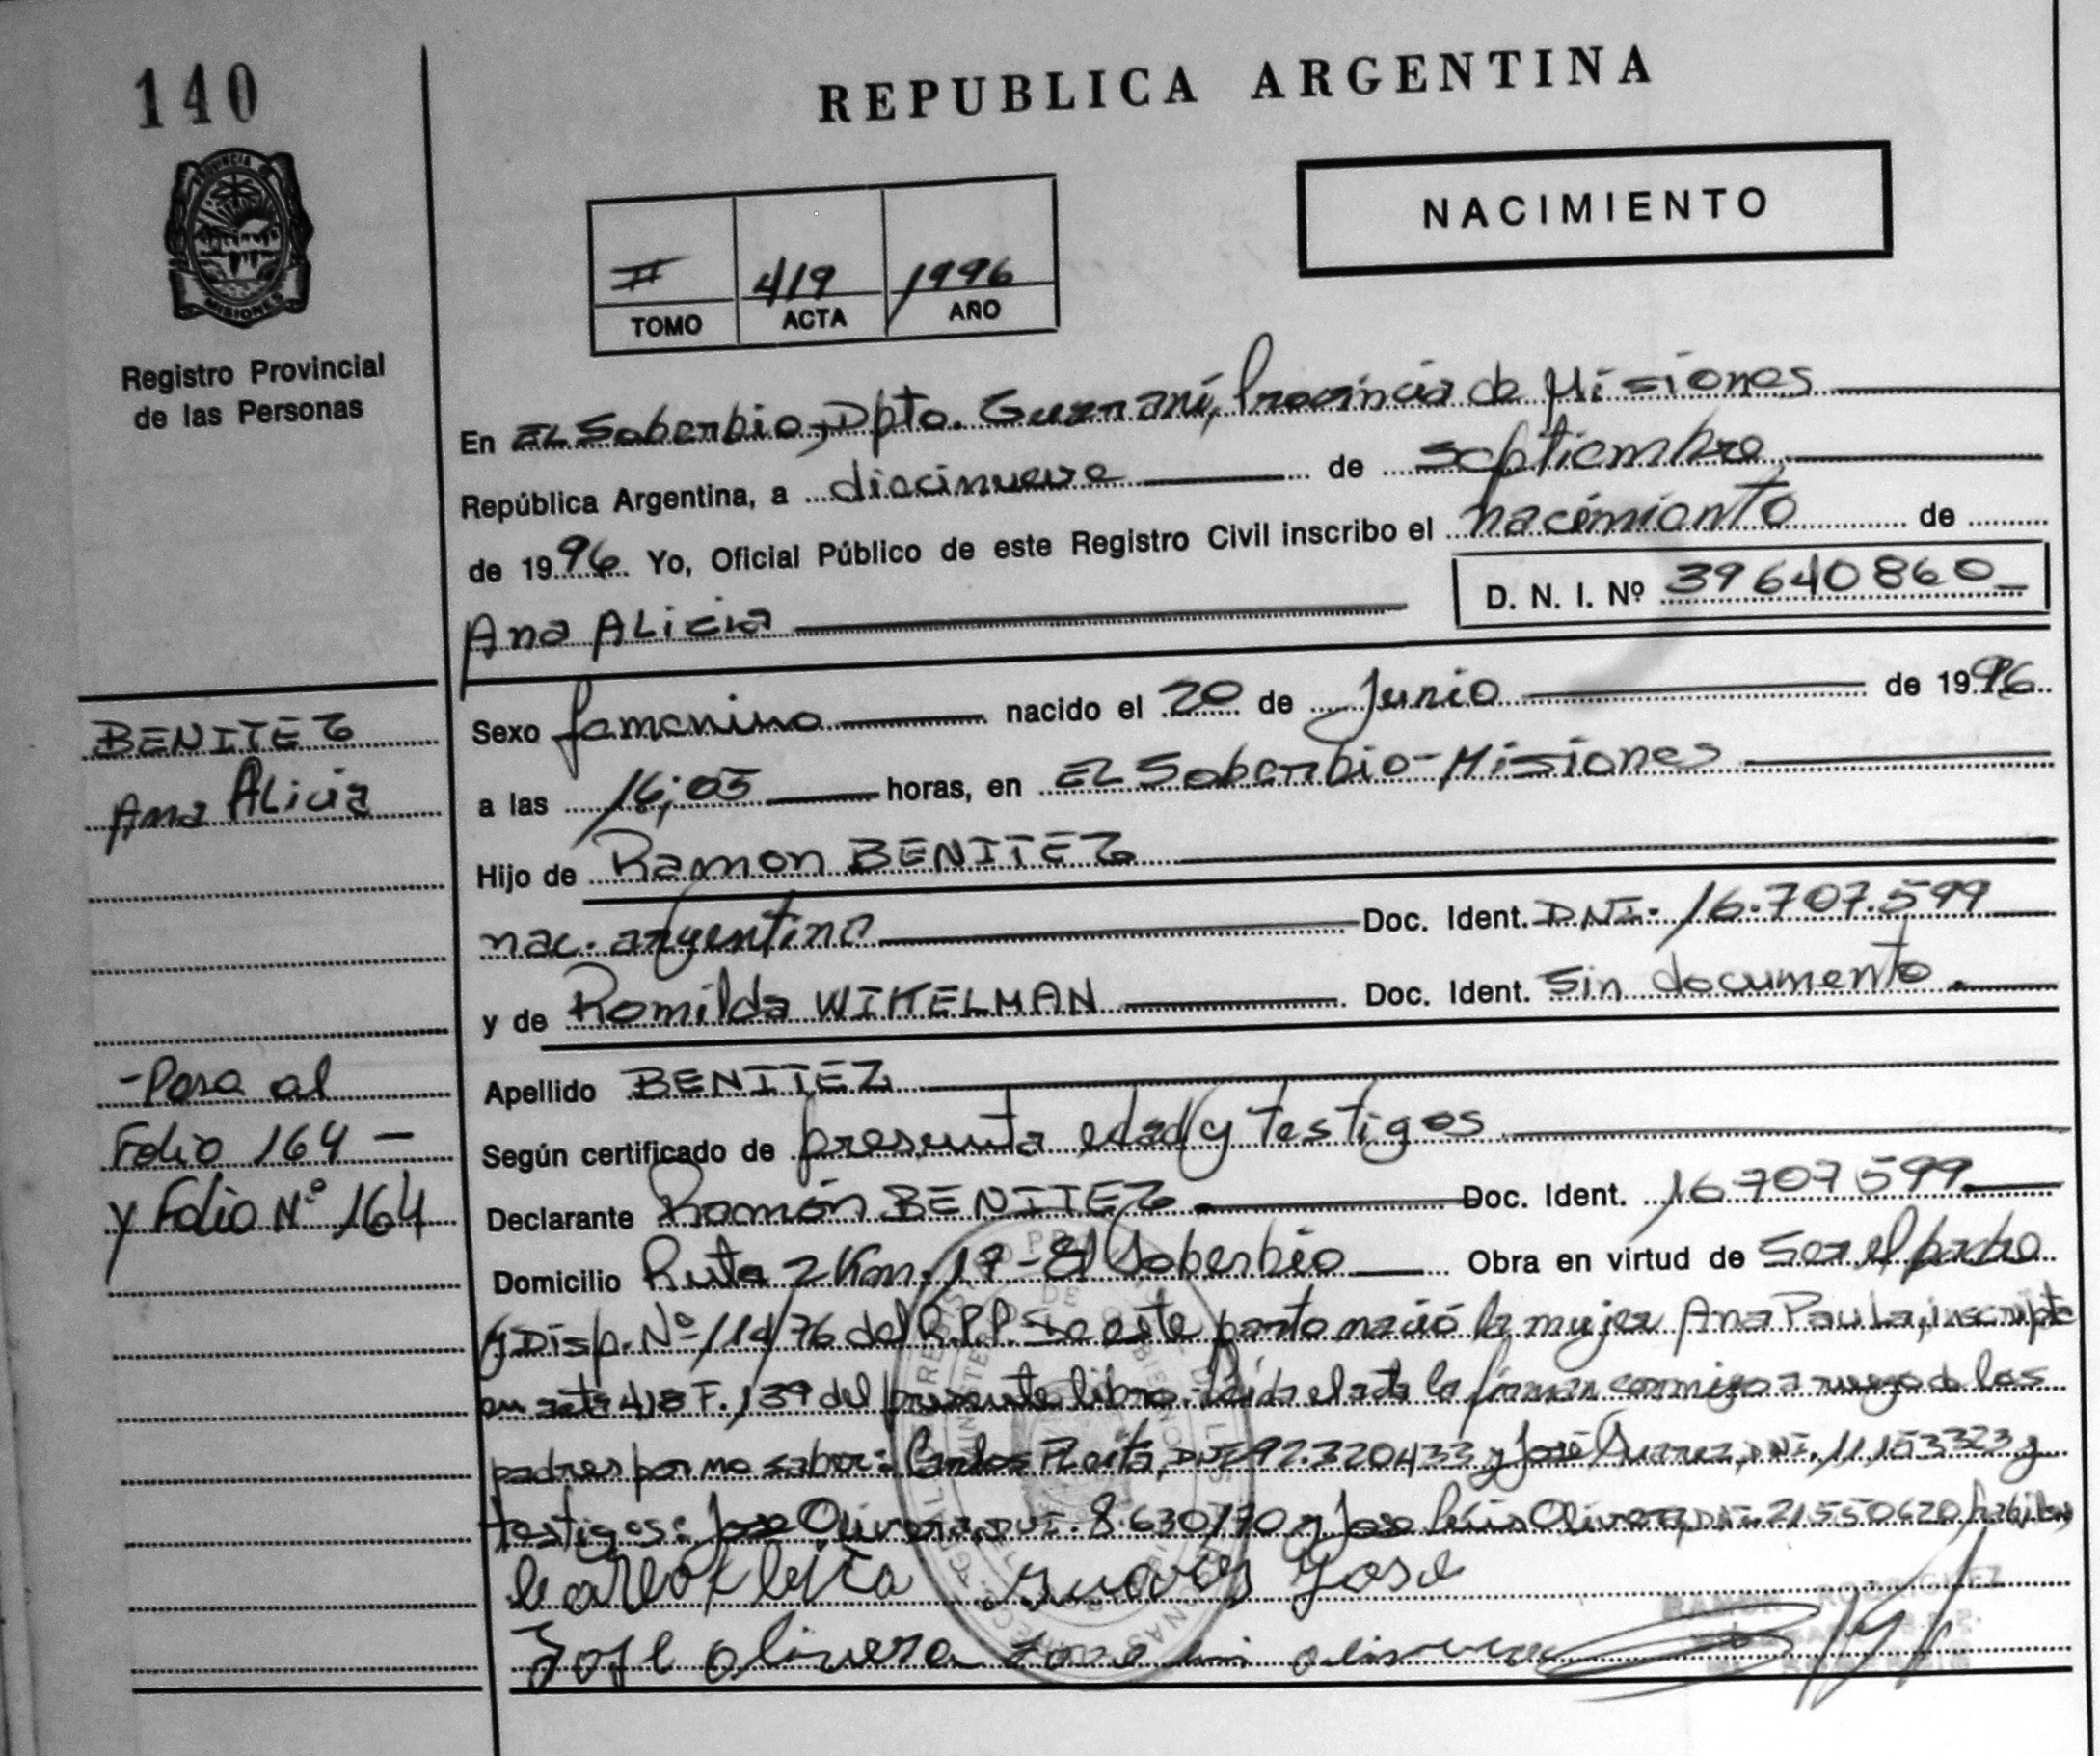 140
REPUBLICA ARGENTINA
PROVINCIA DE
MISIONES
Registro Provincial
de las Personas
NACIMIENTO
II 419 1996
TOMO ACTA AÑO
En EL Soberbio, Dpto. Guarani, Provincia de Misiones
República Argentina, a diecinueve de septiembre,
de 1996 Yo, Oficial Público de este Registro Civil inscribo el nacimiento de
Ana ALicia D. N. I. Nº 39640860
BENITEZ
Ana ALicia
Sexo femenino nacido el 20 de Junio de 1996
a las 16;05 horas, en EL Soberbio-Misiones
Hijo de Ramon BENITEZ
nac. argentino Doc. Ident. DNI. 16.707.599
y de Romilda WIKELMAN Doc. Ident. Sin documento.
Apellido BENITEZ
-Pasa al
Folio 164 -
y Folio Nº 164
Según certificado de presunta edad y testigos
Declarante Ramón BENITEZ Doc. Ident. 16707599
Domicilio Ruta 2 Km. 17 - El Soberbio Obra en virtud de Ser el padre
y Disp. Nº 114/76 del R.P.P. De este parto nació la mujer Ana Paula, inscripta
en acta 418 F. 139 del presente libro.- Leída el acta la firman conmigo a ruego de los
padres por no saber: Carlos DNI 92.320433 y José Suarez, DNI. 11153323 y
testigos: Jose Olivera, DNI. 8.630170 y Jose Luis Olivera, DNI. 21550620, habiles
Suares Jose
Jose olivera Jose luis olivera
RAMON RODRIGUEZ